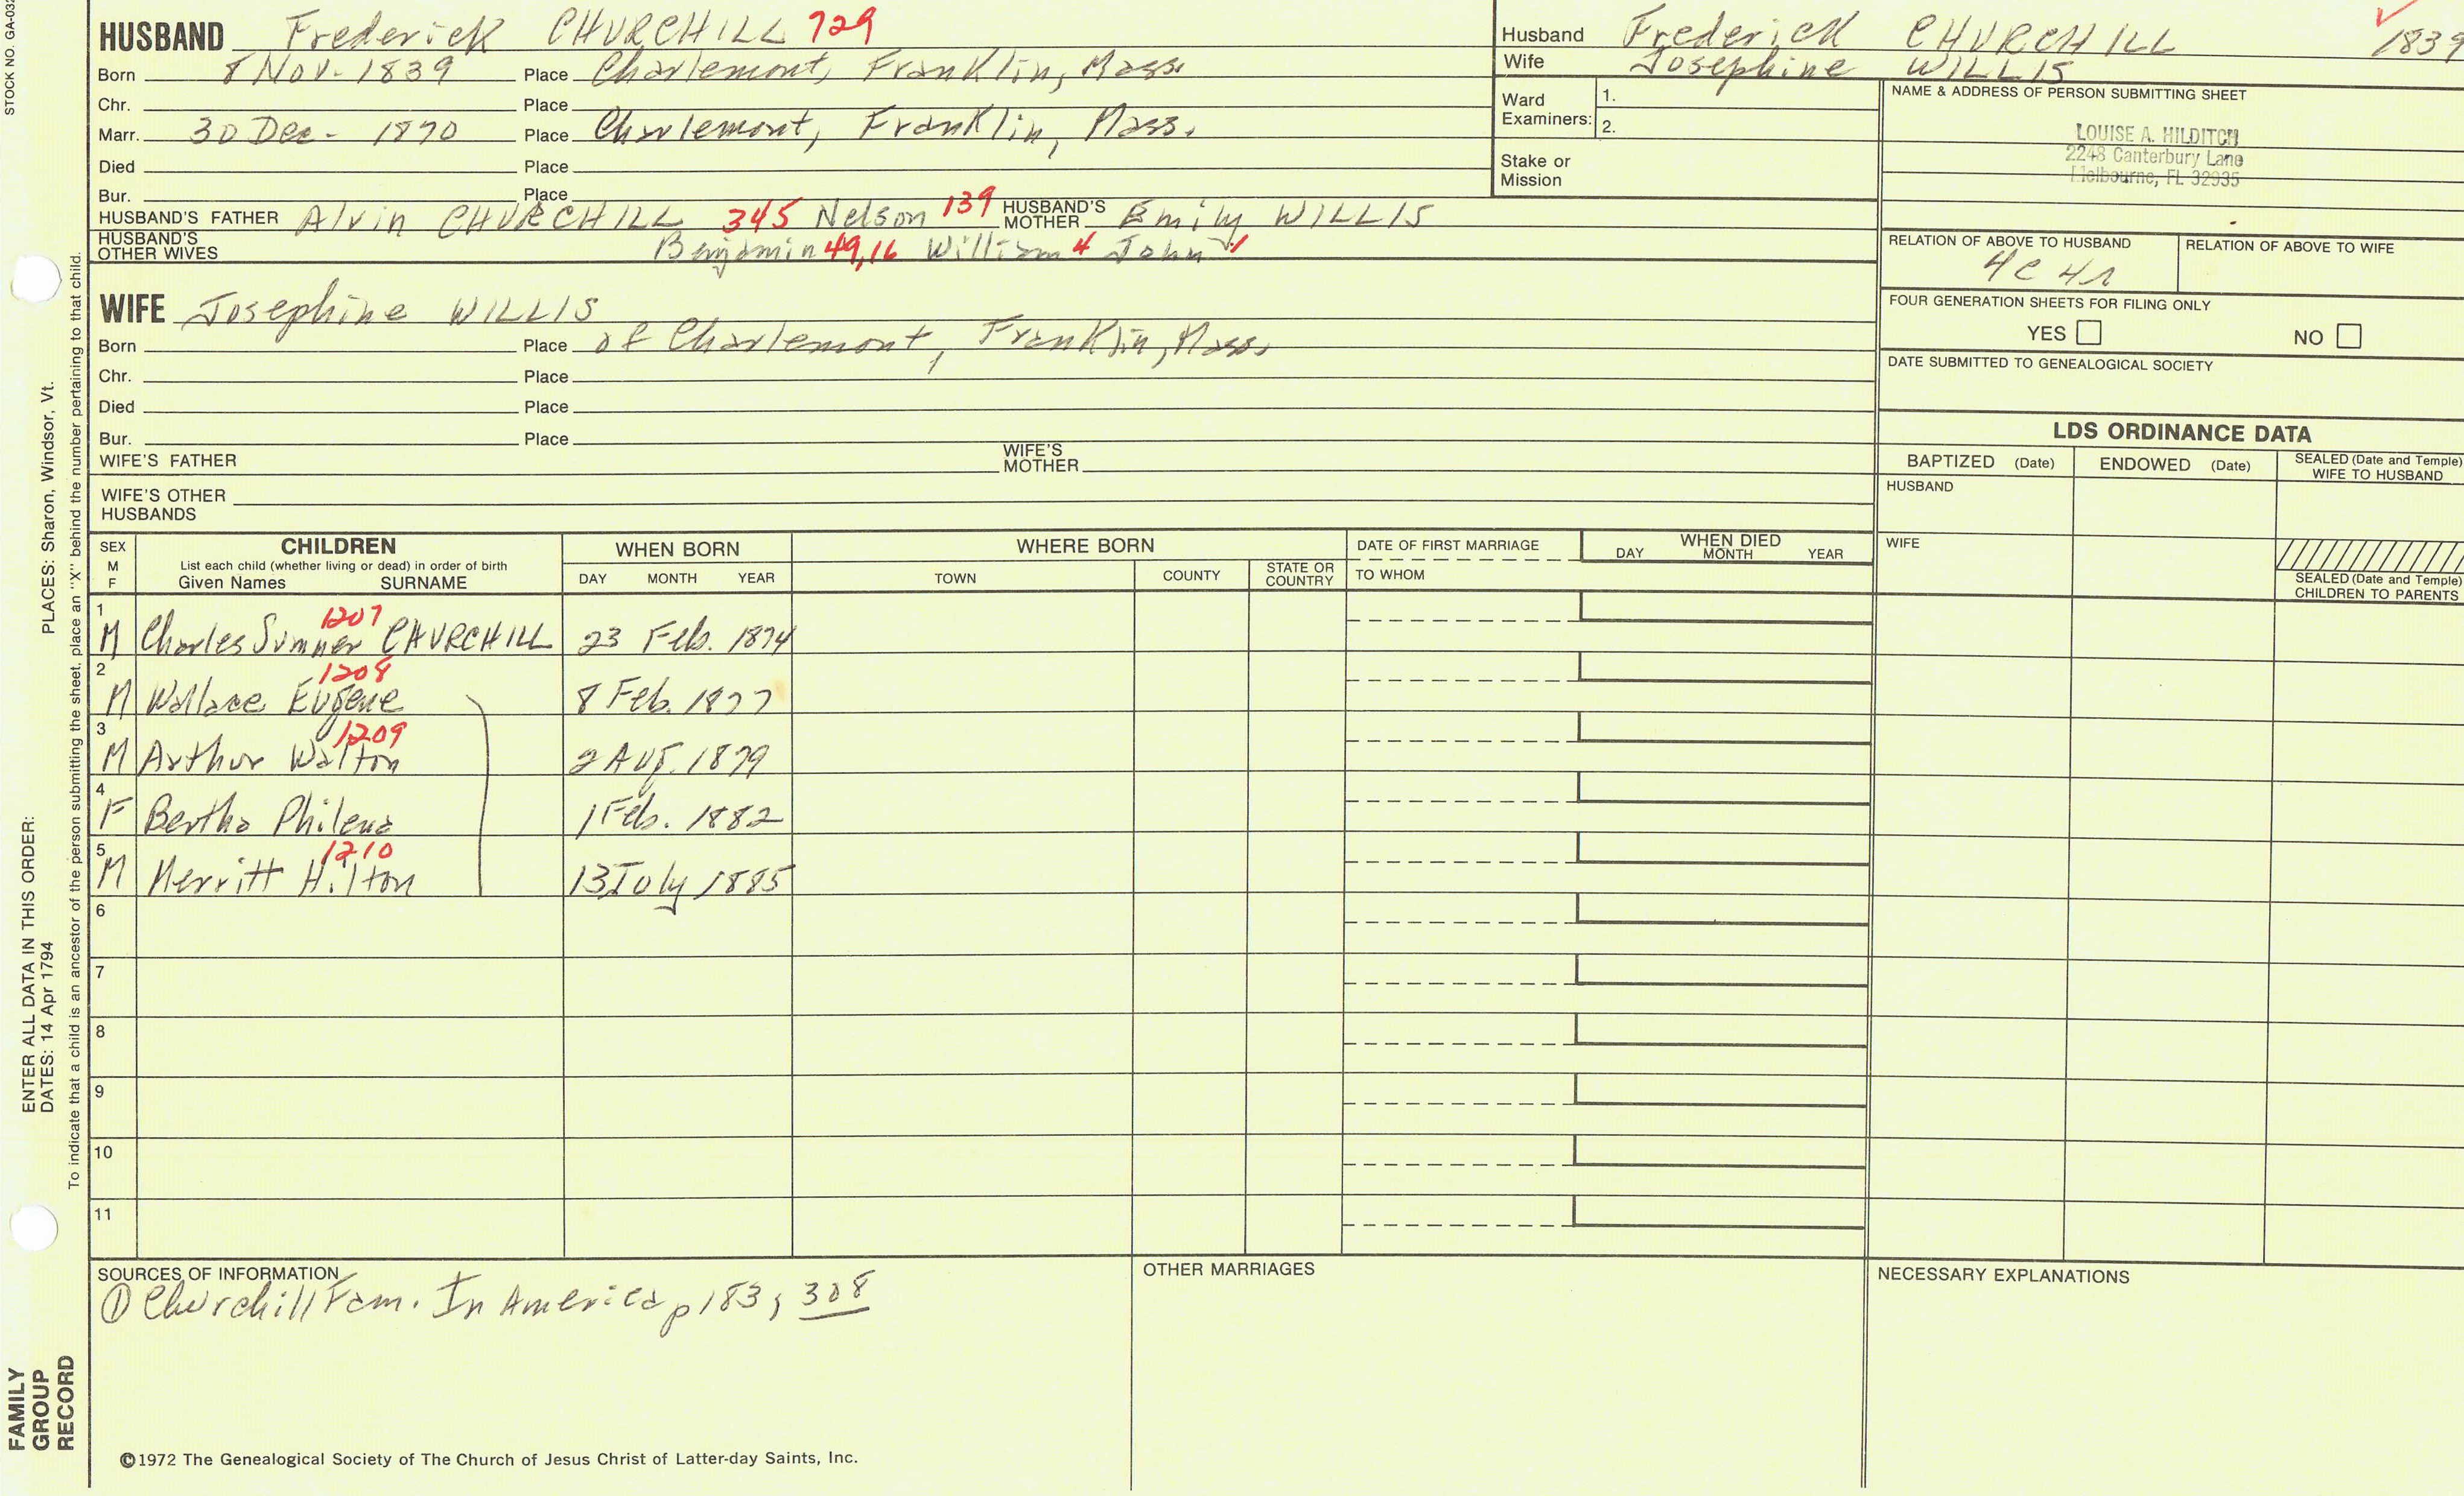 HUSBAND Frederick CHURCHILL 729
Born 8 Nov. 1839 Place Charlemont, Franklin, Mass.
Chr. Place
Marr. 30 Dec. 1870 Place Charlemont, Franklin, Mass.
Died Place
Bur. Place
HUSBAND'S FATHER Alvin CHURCHILL 345 Nelson 139 HUSBAND'S MOTHER Emily WILLIS
HUSBAND'S OTHER WIVES Benjamin 49,16 William 4 John 1
WIFE Josephine WILLIS
Born Place of Charlemont, Franklin, Mass.
Chr. Place
Died Place
Bur. Place
WIFE'S FATHER WIFE'S MOTHER
WIFE'S OTHER HUSBANDS
Husband Frederick CHURCHILL 1839
Wife Josephine WILLIS
Ward Examiners: 1.
2.
Stake or Mission
NAME & ADDRESS OF PERSON SUBMITTING SHEET
LOUISE A. HILDITCH
2248 Canterbury Lane
Melbourne, FL 32935
RELATION OF ABOVE TO HUSBAND RELATION OF ABOVE TO WIFE
4C 4r
FOUR GENERATION SHEETS FOR FILING ONLY
YES NO
DATE SUBMITTED TO GENEALOGICAL SOCIETY
LDS ORDINANCE DATA
BAPTIZED (Date) ENDOWED (Date) SEALED (Date and Temple) WIFE TO HUSBAND
HUSBAND
WIFE
SEALED (Date and Temple) CHILDREN TO PARENTS
SEX M F CHILDREN WHEN BORN WHERE BORN DATE OF FIRST MARRIAGE WHEN DIED
List each child (whether living or dead) in order of birth
Given Names SURNAME DAY MONTH YEAR TOWN COUNTY STATE OR COUNTRY TO WHOM DAY MONTH YEAR
1 1207
M Charles Sumner CHURCHILL 23 Feb. 1874
2 1208
M Wallace Eugene 8 Feb. 1877
3 1209
M Arthur Walton 2 Aug. 1879
4
F Bertha Philena 1 Feb. 1882
5 1210
M Merritt Hilton 13 July 1885
6
7
8
9
10
11
SOURCES OF INFORMATION OTHER MARRIAGES NECESSARY EXPLANATIONS
① Churchill Fam. In America p 183, 308
©1972 The Genealogical Society of The Church of Jesus Christ of Latter-day Saints, Inc.
STOCK NO. GA-032
PLACES: Sharon, Windsor, Vt.
ENTER ALL DATA IN THIS ORDER:
DATES: 14 Apr 1794
To indicate that a child is an ancestor of the person submitting the sheet, place an "X" behind the number pertaining to that child.
FAMILY
GROUP
RECORD